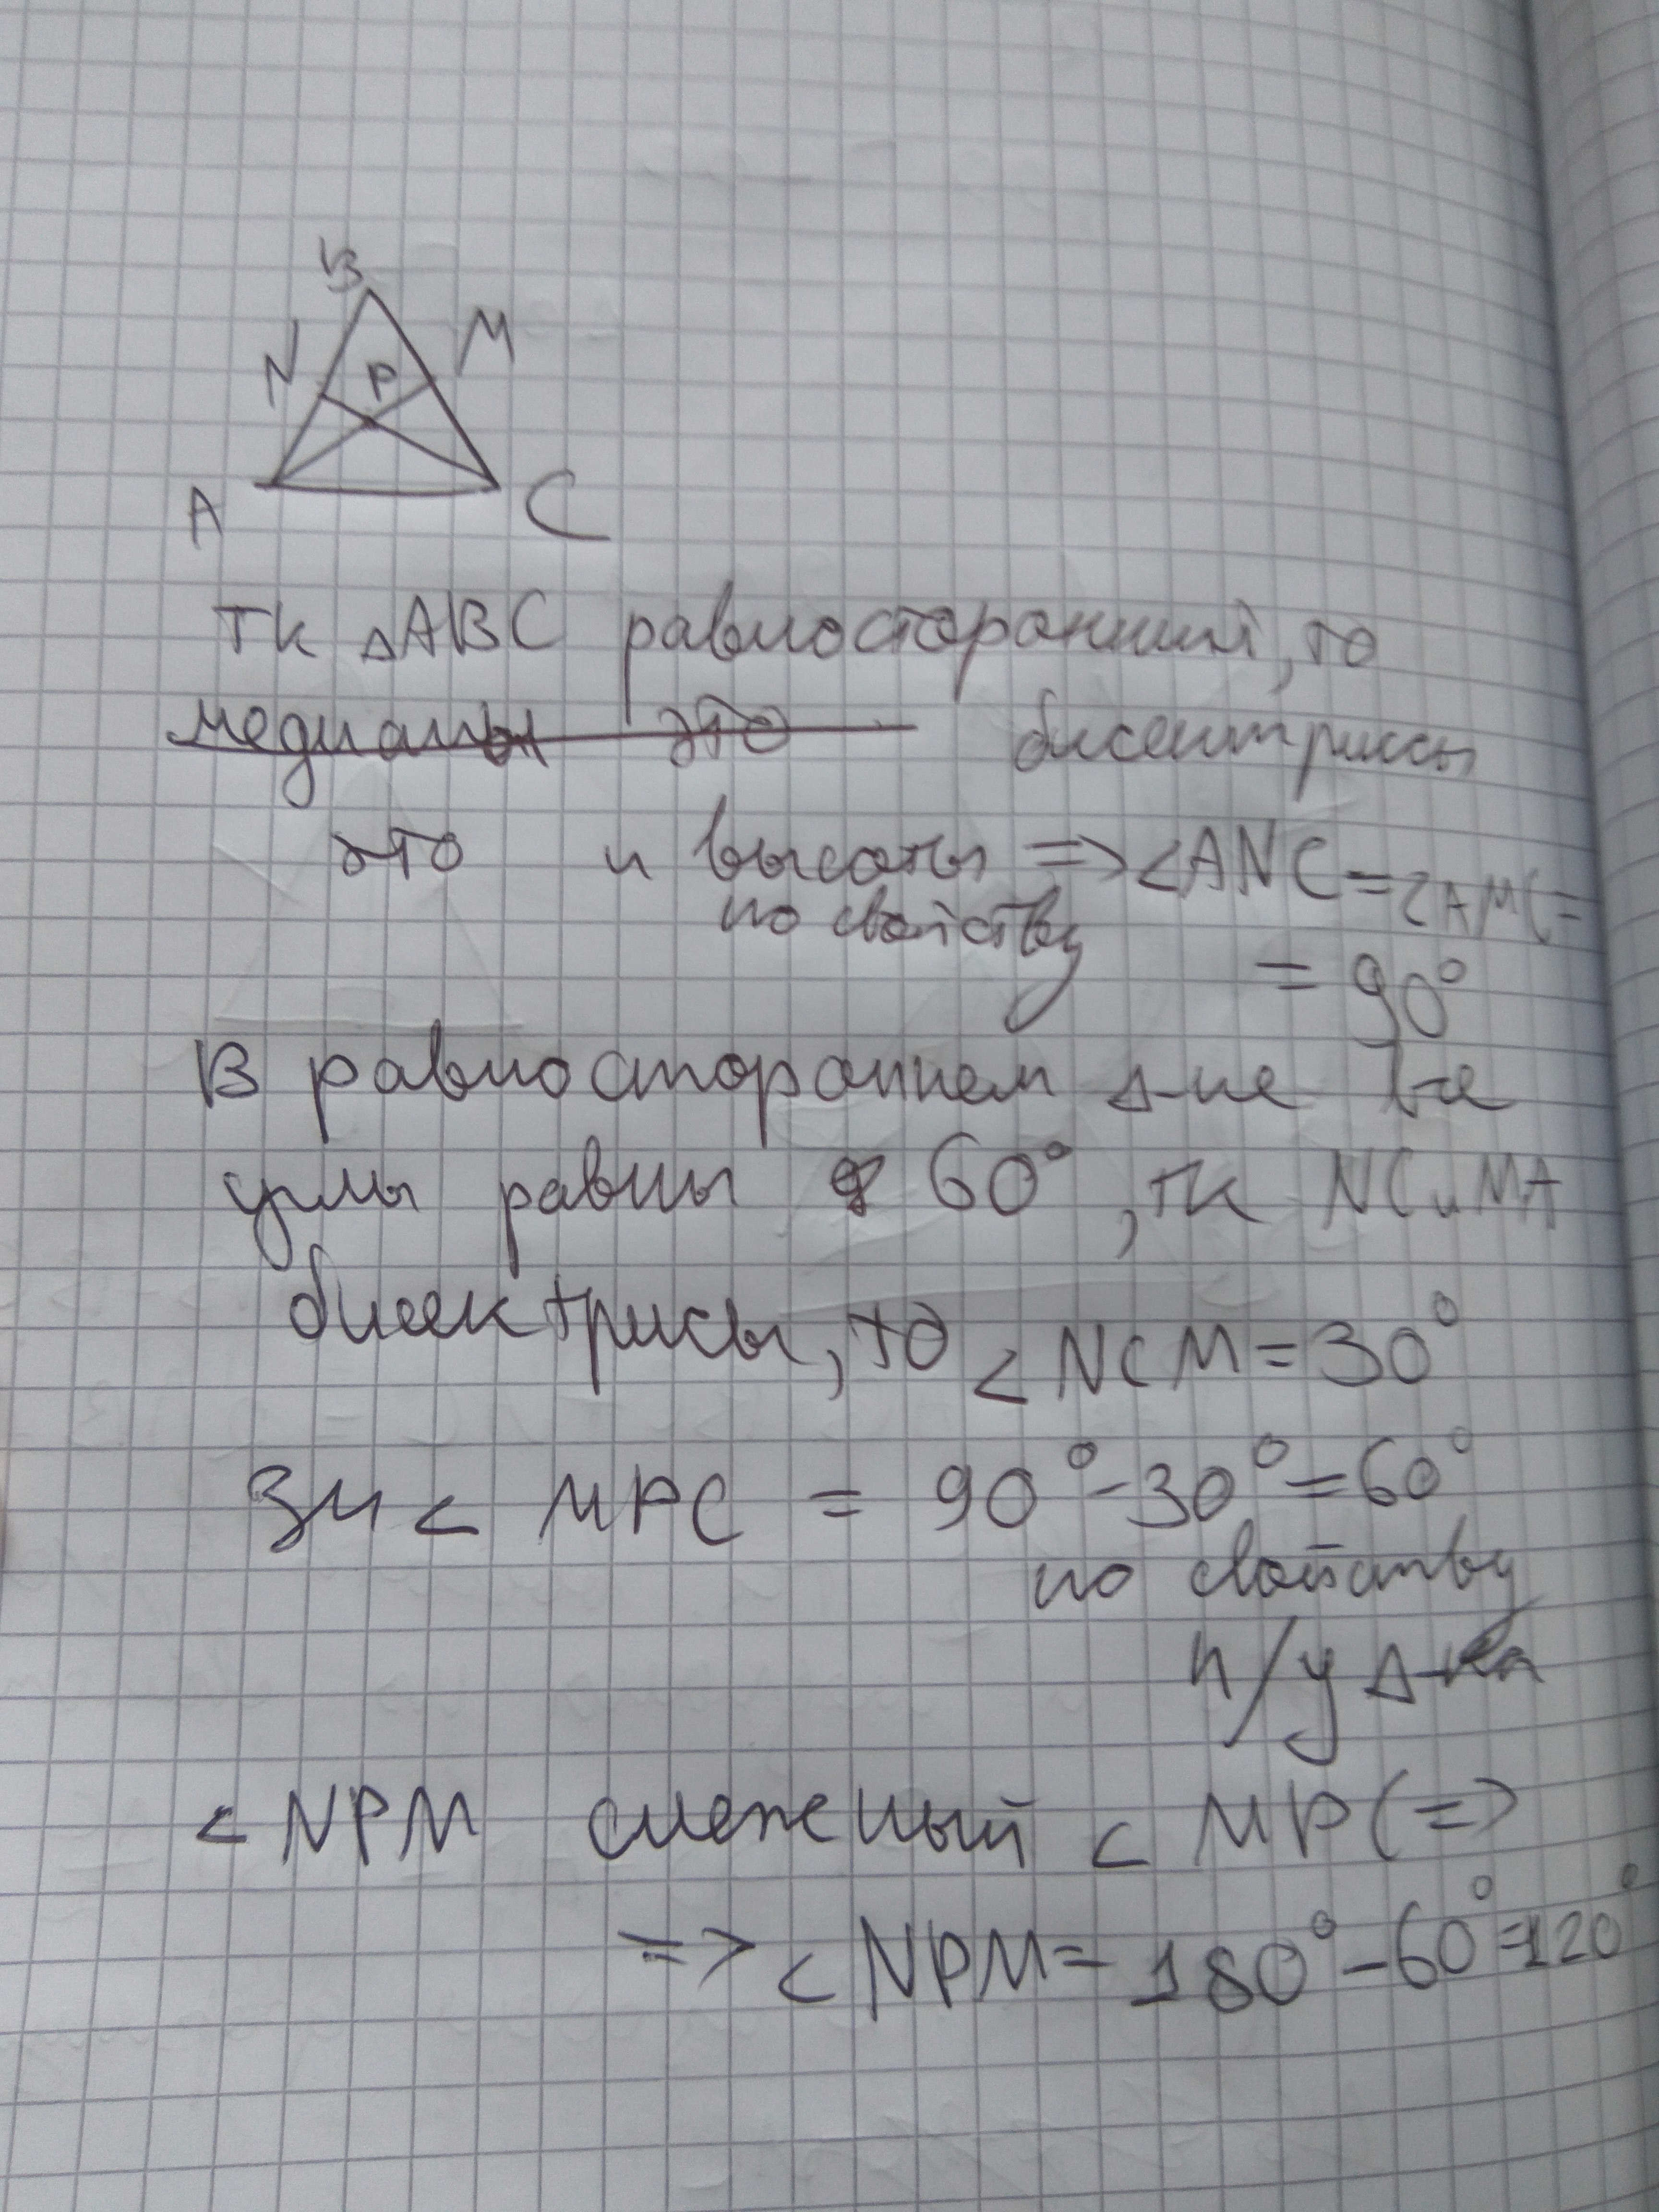 B
N P M
A C
тк △ABC равносторонний, то
медианы это биссектриссы
это и высоты => <ANC = <AMC =
по свойству
= 90°
В равностороннем △-ке все
углы равны 60°, тк NC и MA
биссектрисы, то <NCM = 30°
Зн < MPC = 90° - 30° = 60°
по свойству
п/у △-ка
< NPM смежный < MPC =>
=> < NPM = 180° - 60° = 120°